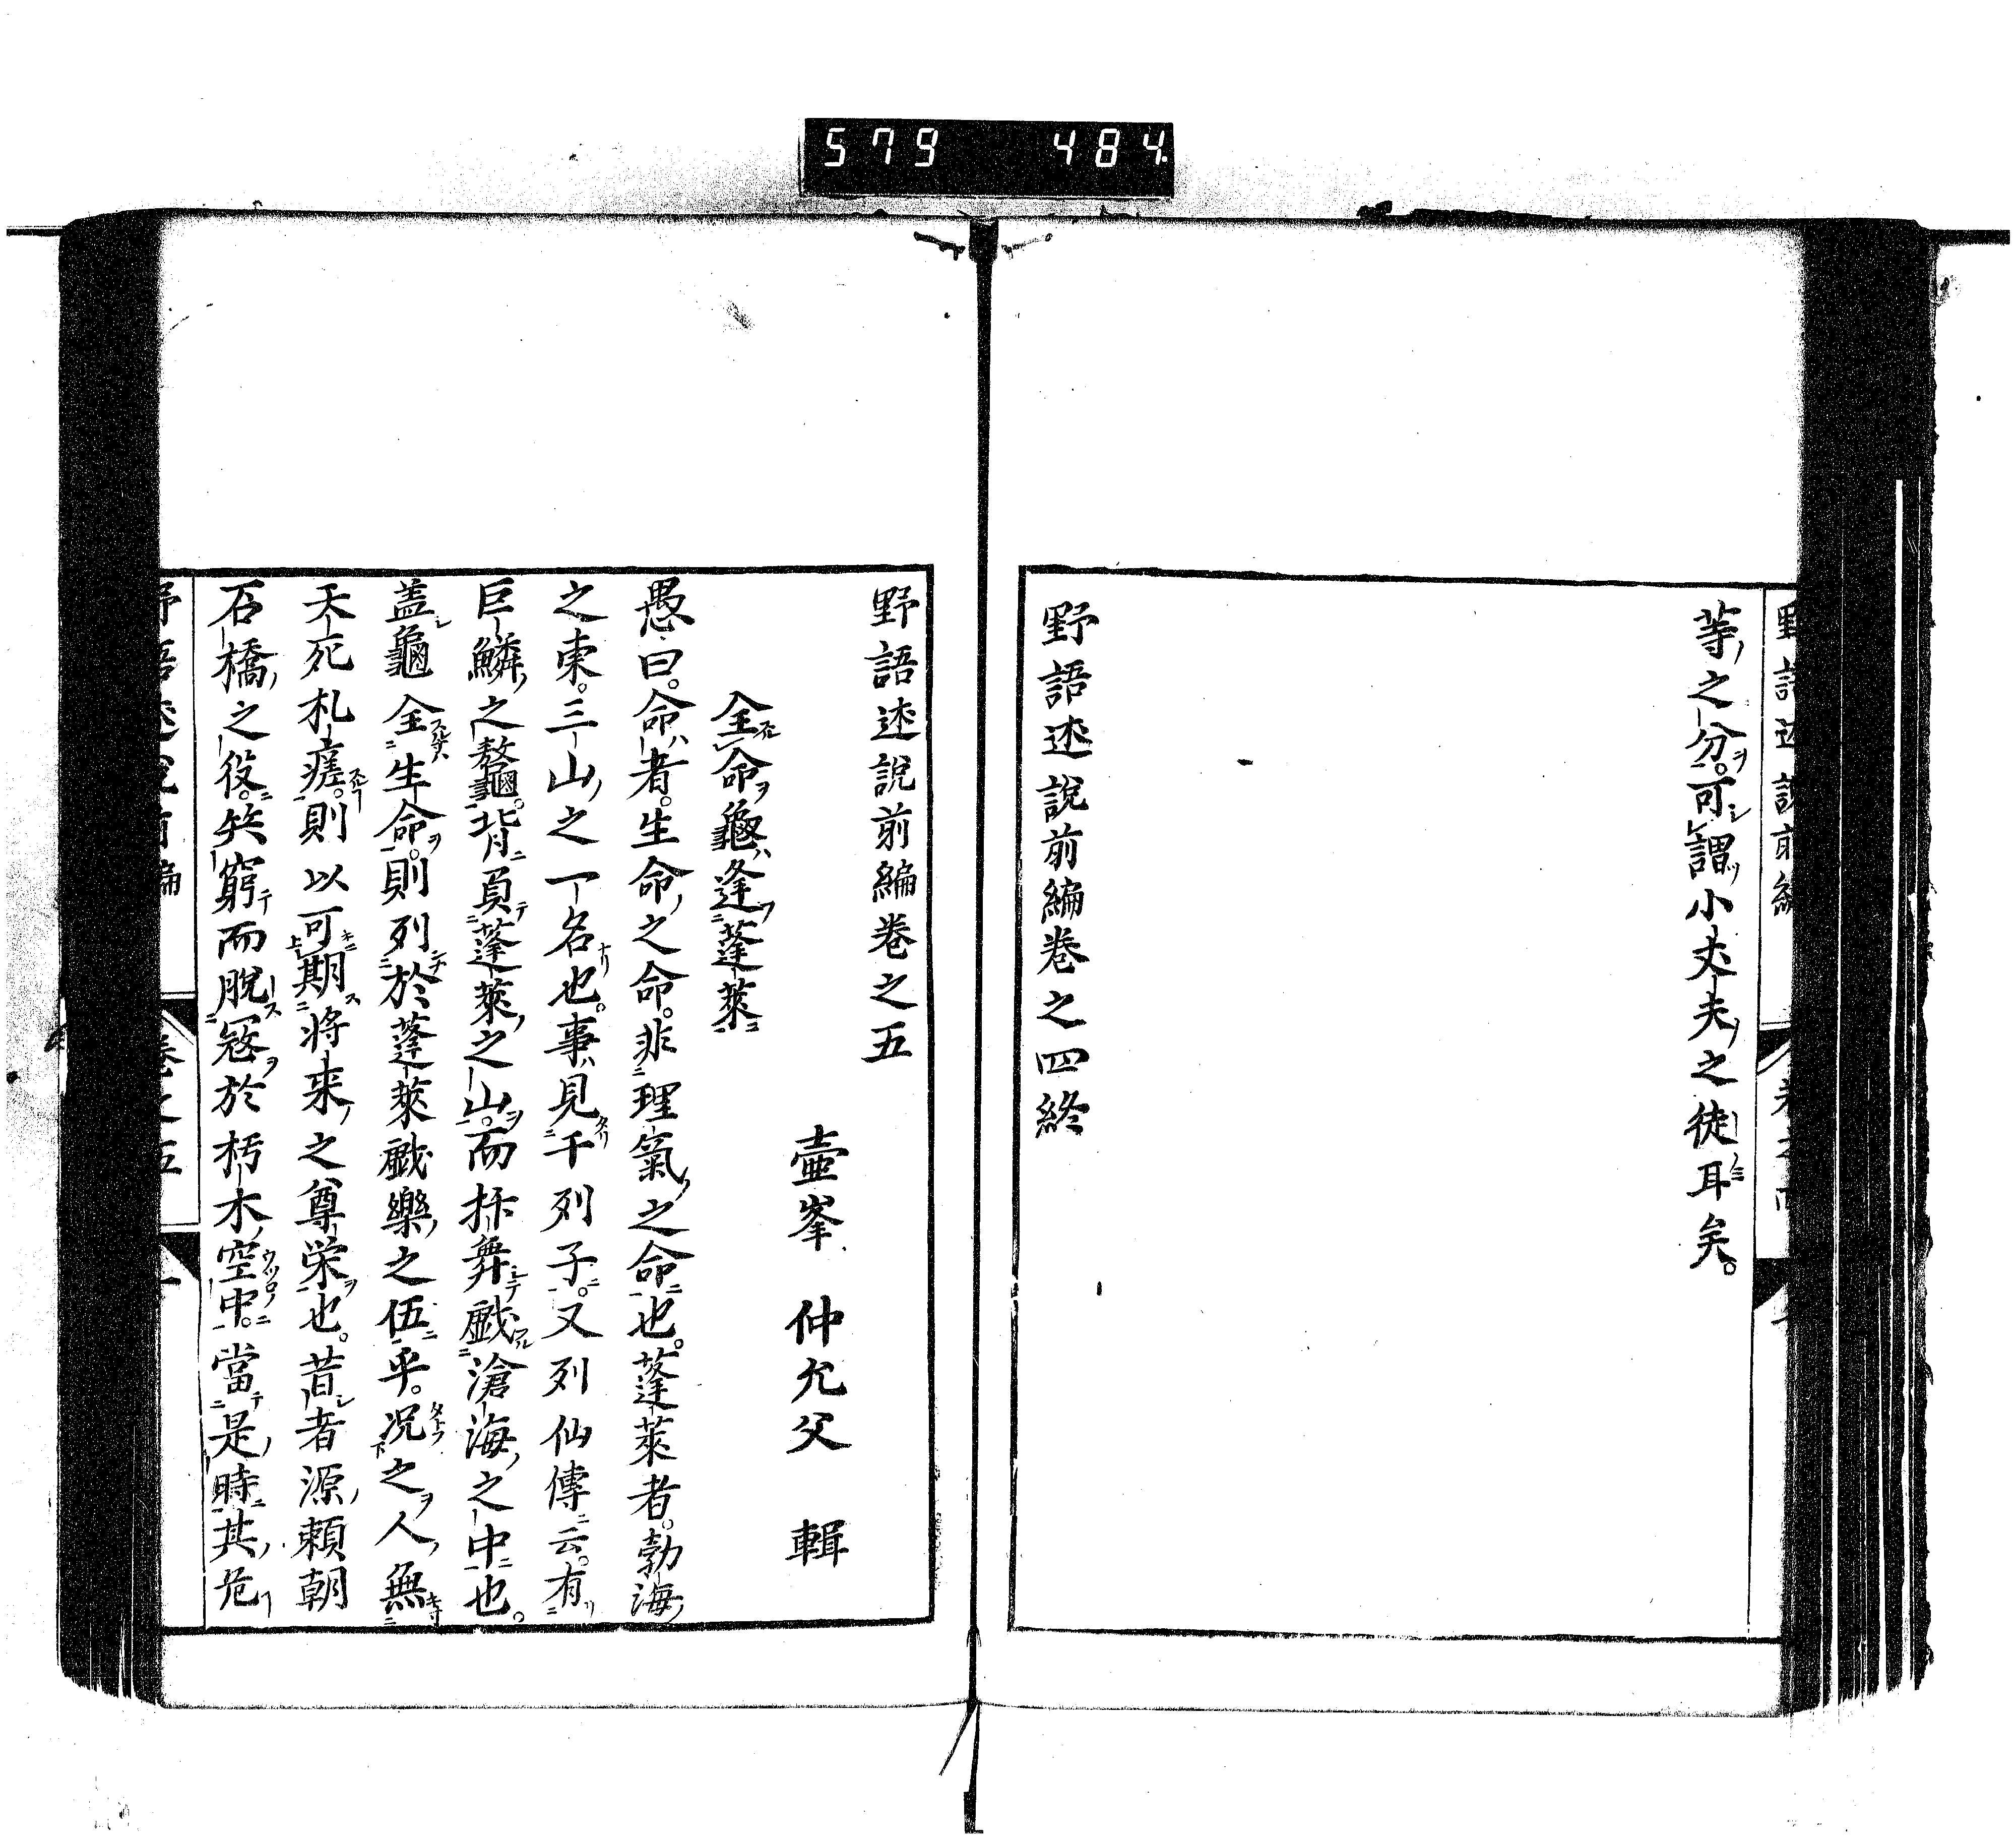 579 484
等之分可謂小丈夫之徒耳矣。
野語述説前編卷之四終
野語述説前編卷之五
壷峯 仲允父 輯
全命龜逢蓬萊
愚曰。命者。生命之命。非理氣之命也。蓬萊者。勃海
之東。三山之一名也。事見千列子。又列仙傳云。有
巨鱗之鼇。背負蓬萊之山。而抃舞戯滄海之中也。
盖龜全生命。則列於蓬萊戯樂之伍乎。况之人無
夭死札瘥。則以可期將来之尊栄也。昔者源頼朝
石橋之役。矢窮而脱冦於朽木空中。當是時其危